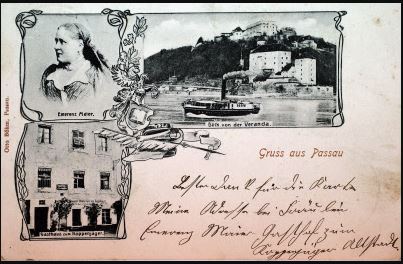 Emerenz Meier.
Blick von der Veranda.
Gasthaus zum Koppenjäger.
Otto Böhm, Passau.
Gruss aus Passau
Besten Dank für die Karte
Meine Adresse bei Fräulein
Emerenz Meier Gasthof zum
Koppenjäger Altstadt.